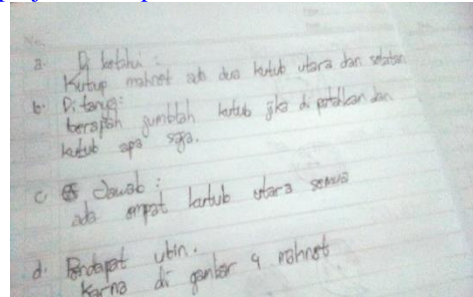 a. Di ketahui :
Kutup mahnet ada dua kutub utara dan selatan
b. Di tanya:
berapah jumblah kutub jika di patahkan dan
kutub apa saja.
c. Jawab :
ada empat kutub utara semua
d. Pendapat ubin.
Karna di gambar 4 mahnet